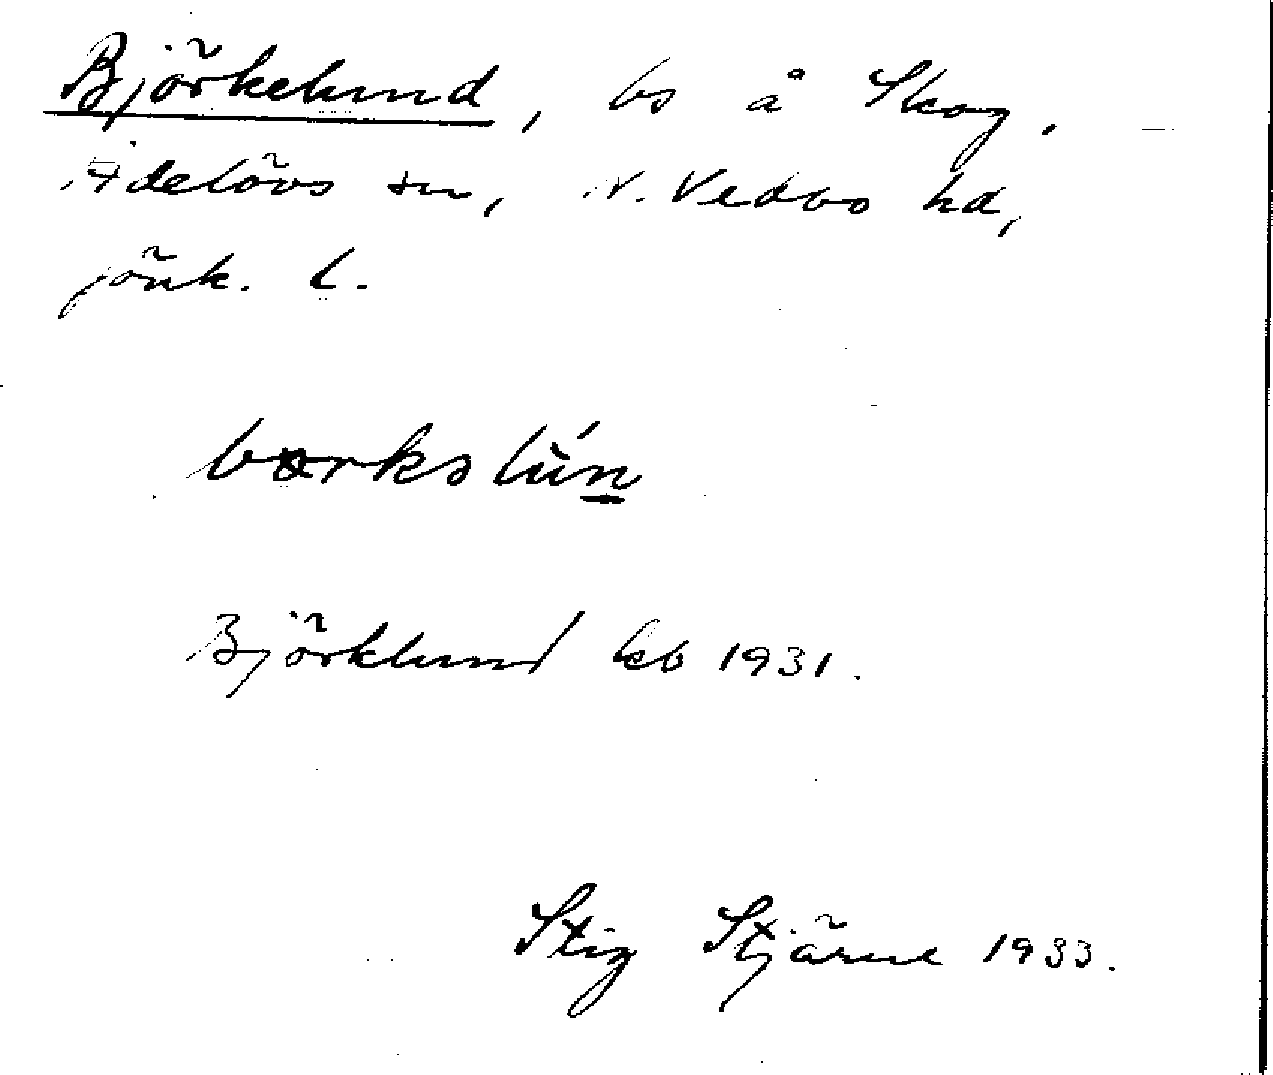 Björkelund, bs å Skog,
Adelövs sn, N. Vedbo hd,
jönk. l.
bɷrkəlùn
Björklund kb 1931.
Stig Stjärne 1933.